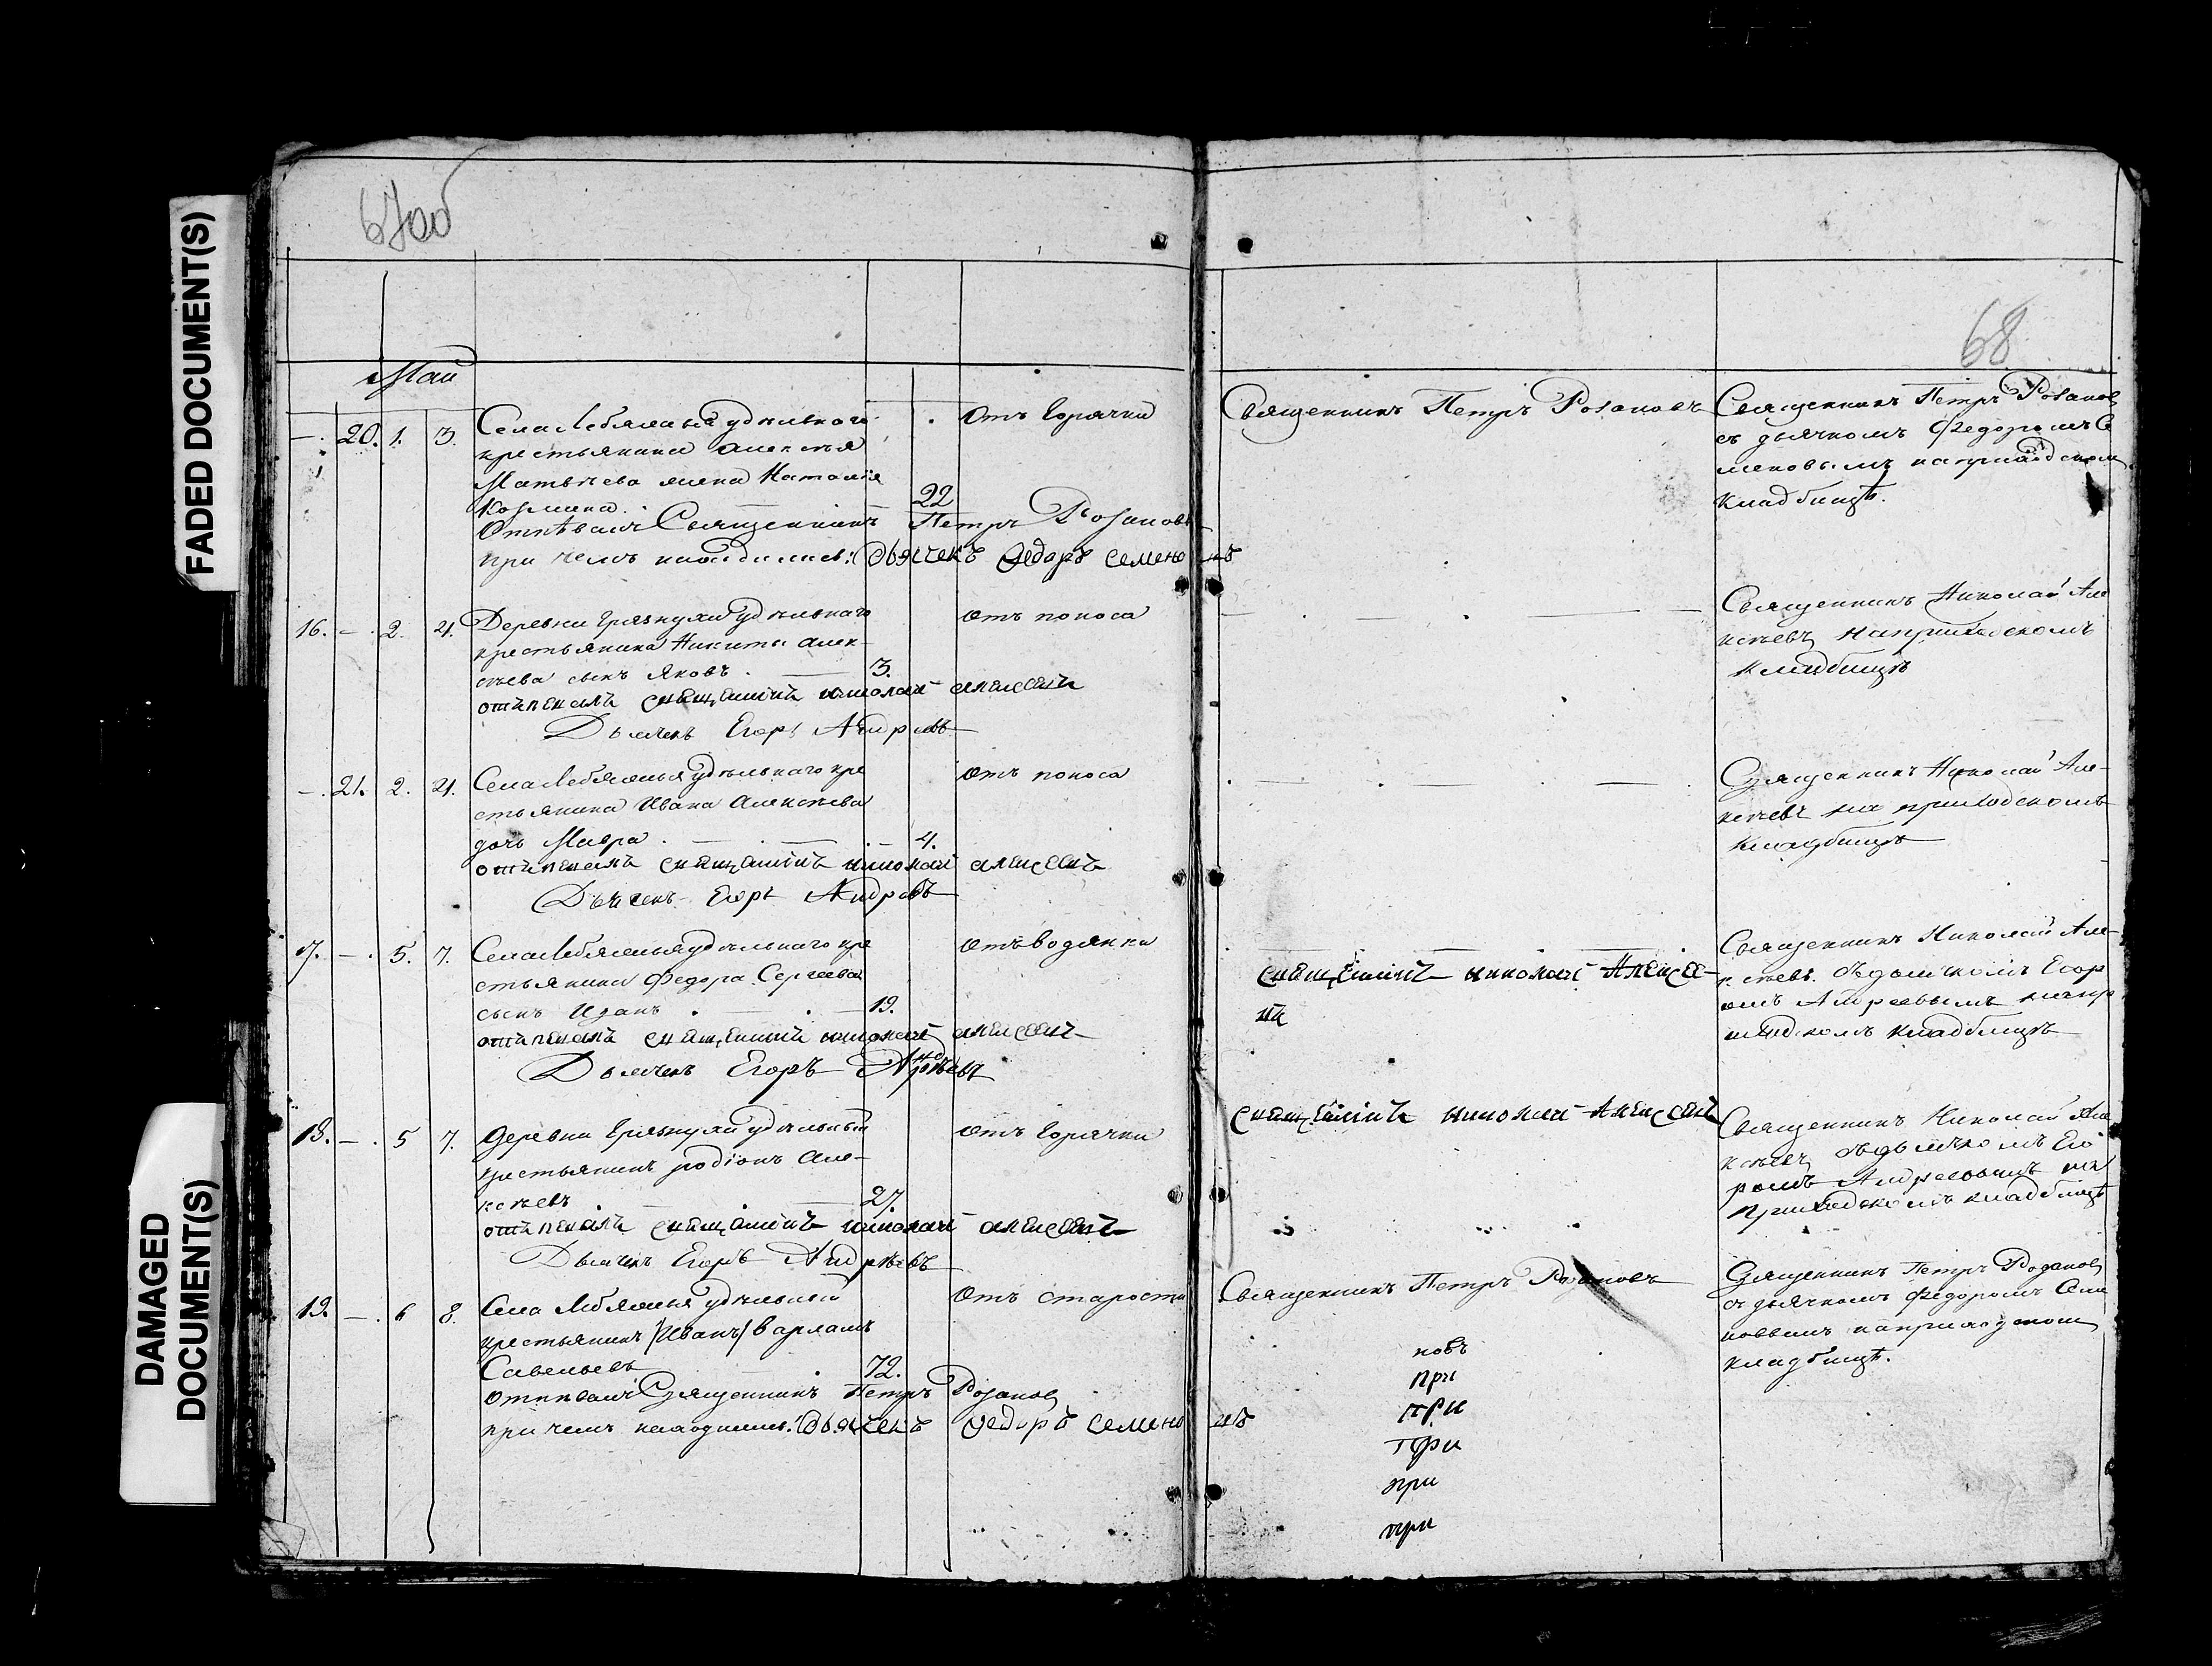 FADED DOCUMENT(S)
DAMAGED
DOCUMENT(S)
67об
68
Май
—. 20. 1. 3.
Села Лебяжья удельнаго
крестьянина Алексея
Матвеева жена Наталия
Козмина. 22
от горячки
Отпевалъ Священникъ Петръ Розановъ
при чемъ находились: Дьячекъ Федоръ Семеновъ
Священникъ Петръ Розановъ
Священникъ Петръ Розановъ
съ дьячкомъ Федоромъ Се
меновымъ на приходском
кладбищѣ.
16. —. 2. 4.
Деревни Грязнухи удѣльнаго
крестьянина Никиты Алек-
сѣева сынъ Яковъ. — 3.
отъ поноса
отпевалъ священникъ николай алексеевъ
Дьячекъ Егоръ Андреевъ
Священникъ Николай Але
ксѣевъ на приходскомъ
кладбищѣ
—. 21. 2. 4.
Села Лебяжья удѣльнаго кре
стьянина Ивана Алексѣева
дочь Мавра. — . — 4.
отъ поноса
отпевалъ священникъ николай алексеевъ
Дьячекъ Егоръ Андреевъ
Священникъ Николай Але-
ксѣевъ на приходскомъ
кладбищѣ
17. —. 5. 7.
Села Лебяжья удѣльнаго кре
стьянина Федора Сергеева
сынъ Иванъ. — . — 19.
отъ водянки
отпевалъ священникъ николай алексеевъ
Дьячекъ Егоръ Андреевъ
священникъ николай Алексее-
въ
Священникъ Николай Але-
ксѣевъ съ дьячкомъ Егор
омъ Андреевымъ на пр
иходскомъ кладбищѣ
18. —. 5 7.
Деревни Грязнухи удѣльный
крестьянинъ родіонъ Але-
ксѣевъ — 27.
отъ горячки
отпевалъ священникъ николай алексеевъ
Дьячекъ Егоръ Андрѣевъ
священникъ николай Алексеевъ
Священникъ Николай Але
ксѣевъ съ дьячкомъ Его
ромъ Андреевымъ на
приходскомъ кладбищѣ
19. —. 6 8.
Села Лебяжья удѣльный
крестьянинъ /Иванъ/ Варламъ
Савельевъ . 72.
Отъ старости
отпевалъ Священникъ Петръ Розановъ
при чемъ находились: Дьячекъ Федоръ Семеновъ
Священникъ Петръ Розановъ
Священникъ Петръ Розановъ
съ дьячкомъ Федоромъ Семе
новымъ на приходском
кладбищѣ.
новъ
при
при
при
при
при